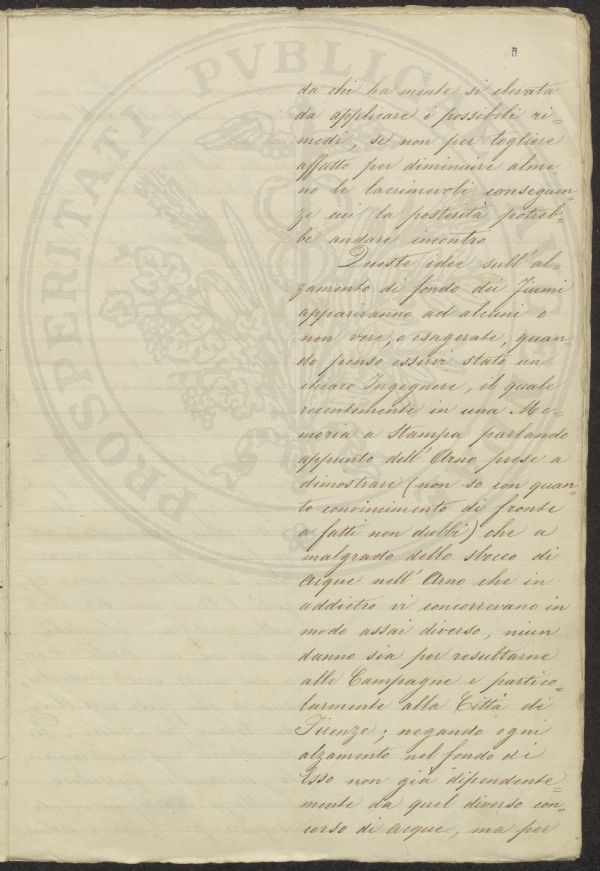 5
PROSPERITATI PVBLICAE
da chi ha mente si elevata
da applicare i possibili ri=
medi, se non per togliere
affatto per diminuire alme
no le lacrimevoli conseguen=
ze cui la posterità potreb=
be andare incontro
Queste idee sull'al=
zamento di fondo dei Fiumi
appariranno ad alcuni o
non vere, o esagerate, quan=
do penso esservi stato un
chiaro Ingegnere, il quale
recentemente in una Me=
moria a stampa parlando
appunto dell'Arno prese a
dimostrare (non so con quan=
to convincimento di fronte
a fatti non dubbi) che a
malgrado dello sbocco di
acque nell'Arno che in
addietro vi concorrevano in
modo assai diverso, niun
danno sia per resultarne
alle Campagne e partico=
larmente alla Città di
Firenze; negando ogni
alzamento nel fondo di
Esso non già dipendente=
mente da quel diverso con=
corso di acque, ma per